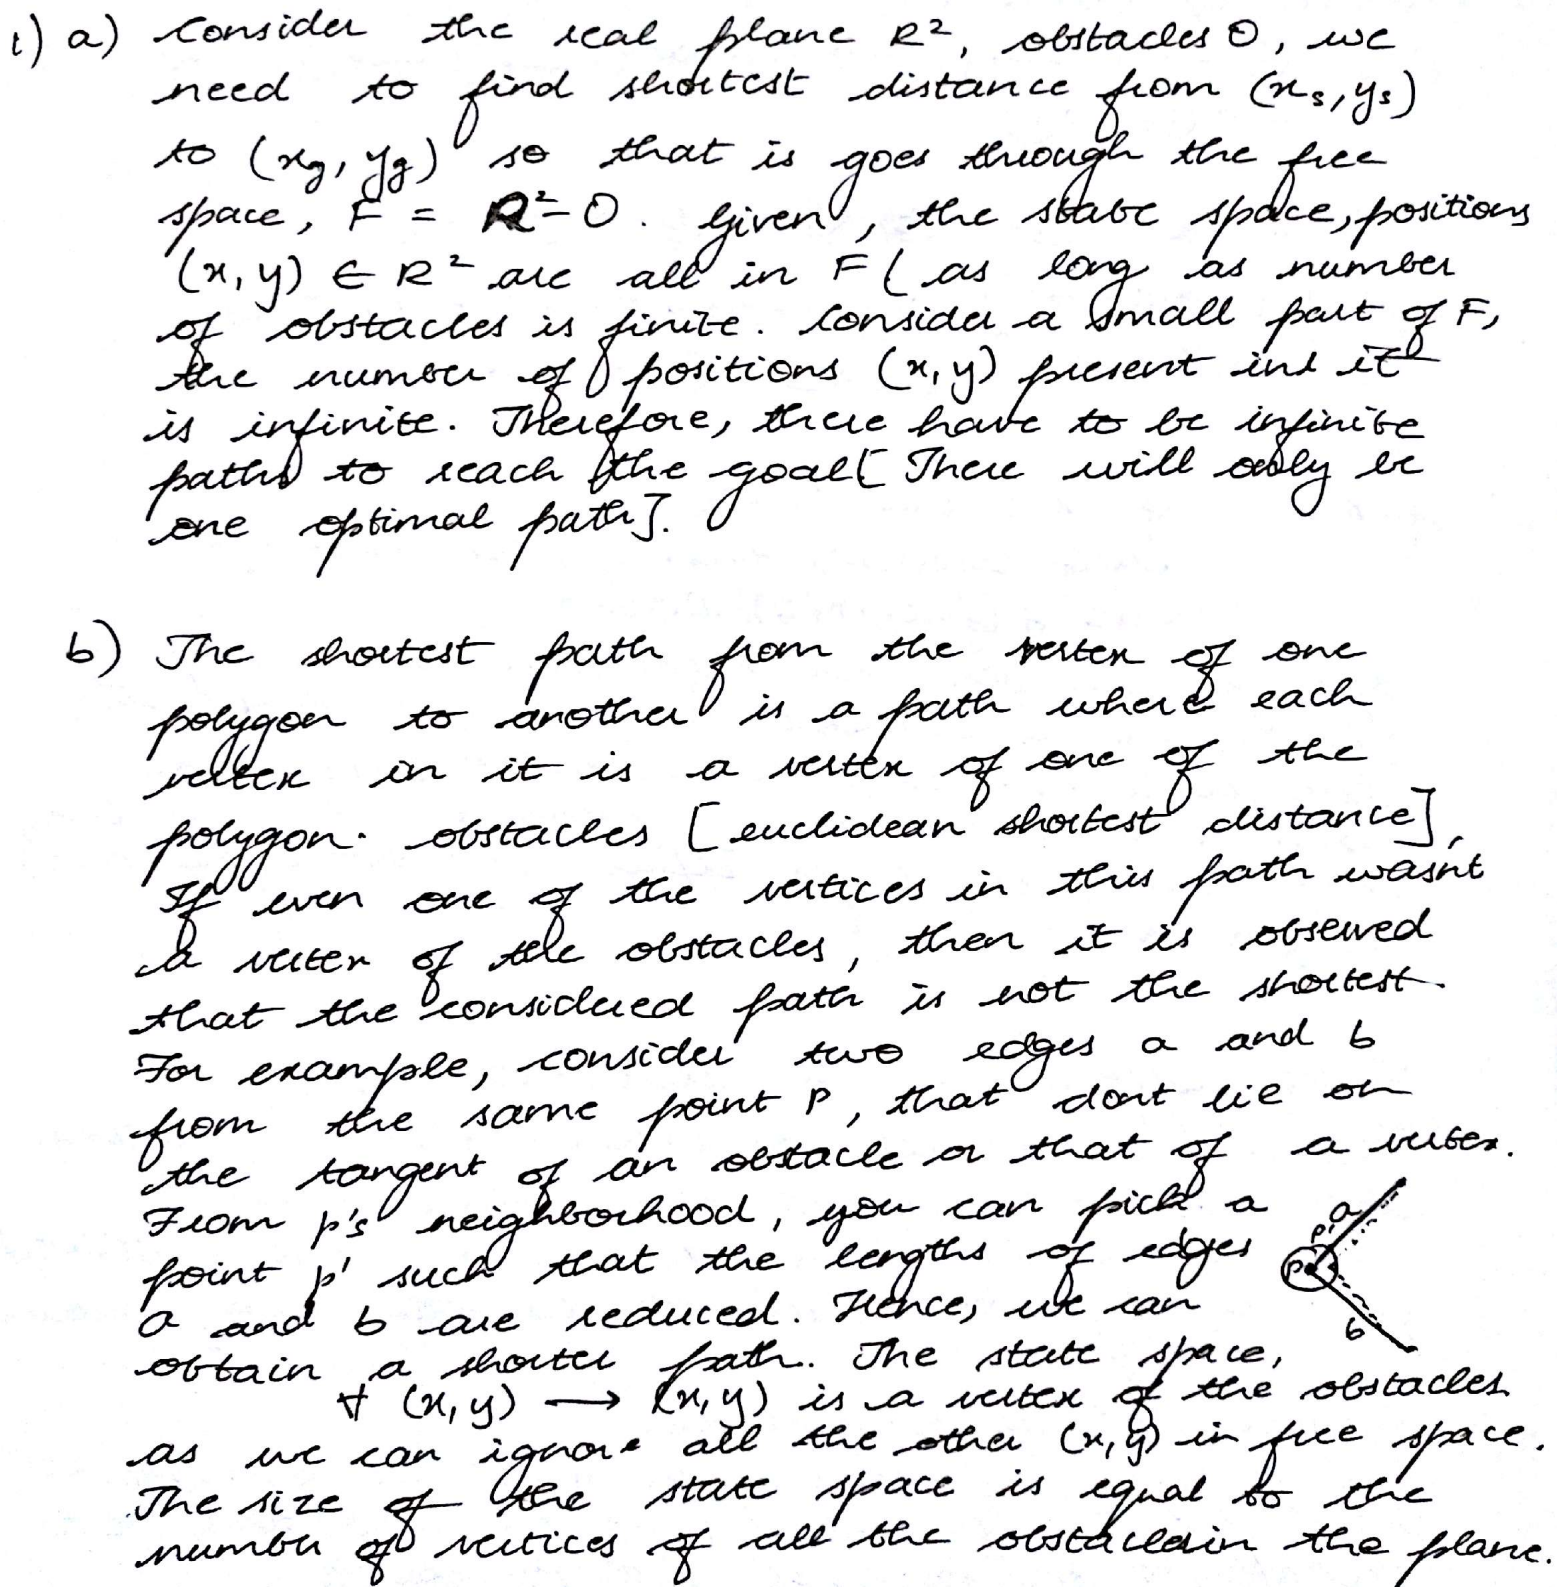 1) a) Consider the real plane R², obstacles O, we
need to find shortest distance from (xs, ys)
to (xg, yg) so that is goes through the free
space, F = R²-O. Given, the state space, positions
(x, y) ∈ R² are all in F ( as long as number
of obstacles is finite. Consider a small part of F,
the number of positions (x, y) present in it
is infinite. Therefore, there have to be infinite
paths to reach the goal [ There will only be
one optimal path].
b) The shortest path from the vertex of one
polygon to another is a path where each
vertex in it is a vertex of one of the
polygon. obstacles [euclidean shortest distance],
If even one of the vertices in this path wasnt
a vertex of the obstacles, then it is observed
that the considered path is not the shortest.
For example, consider two edges a and b
from the same point P, that dont lie on
the tangent of an obstacle or that of a vertex.
From p's neighborhood, you can pick a
point p' such that the lengths of edges
a and b are reduced. Hence, we can
obtain a shorter path. The state space,
∀ (x, y) → (x, y) is a vertex of the obstacles
as we can ignore all the other (x, y) in free space.
The size of the state space is equal to the
number of vertices of all the obstacles in the plane.
a
p'
P
b